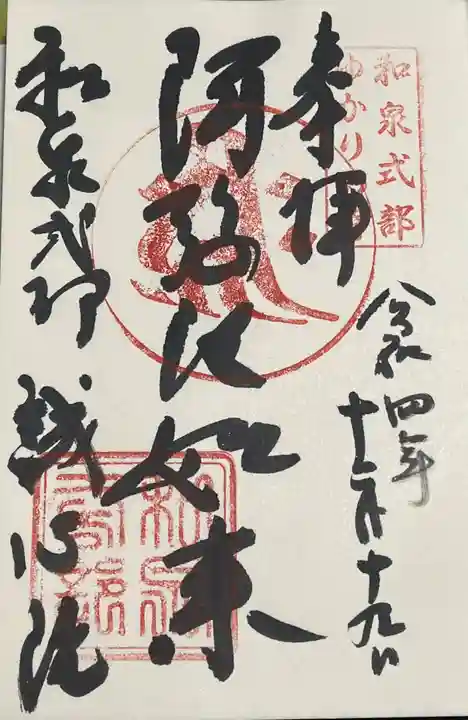 和泉式部
ゆかり
奉拝
令和四年
十一月十九日
阿弥陀如来
和泉式部 誠心院